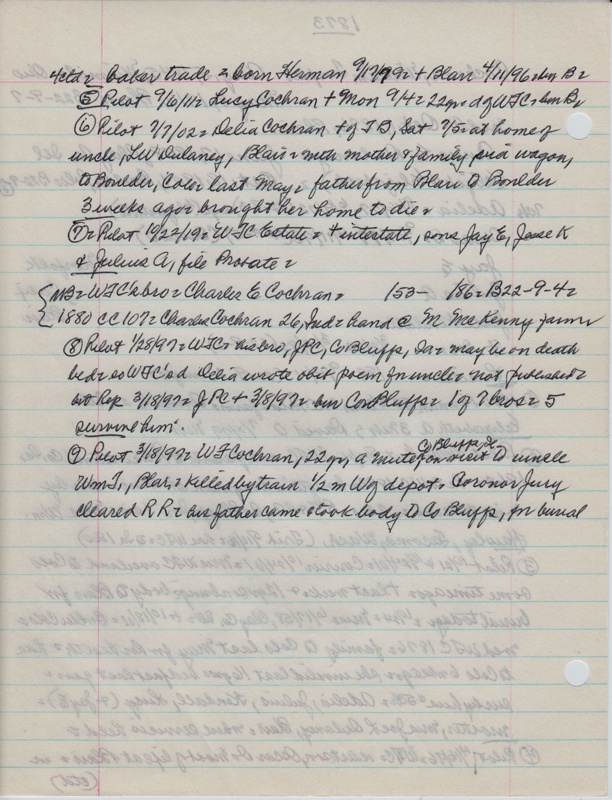 4ctd = baker trade = born Herman 9/17/99 = + Blair 4/11/96 = bn B =
⑤ Pilot 9/6/11 = Lucy Cochran + Mon 9/4 = 22 yrs = d of WTC = bn B =
⑥ Pilot 7/7/02 = Delia Cochran + of TB, Sat 7/5 = at home of
uncle, LW Dulaney, Blair = with mother & family, via wagon,
to Boulder, Colo last May = father from Blair to Boulder
3 weeks ago = brought her home to die =
⑦ = Pilot 10/22/19 = WTC Estate = + intestate, sons Jay E, Jesse K
& Julius A, file Probate =
NB = WTC's bro = Charles E Cochran = 153- 186 = B22-9-4 =
1880 cc 107 = Charles Cochran 26, Ind = hand @ M McKenny farm =
⑧ Pilot 1/28/97 = WTC = his bro, JPC, Co Bluffs, Ia = may be on death
bed = so WTC's d Delia wrote obit poem for uncle = not published =
but Rep 3/18/97 = JPC + 3/8/97 = bur Co Bluffs = 1 of 7 bros = 5
survive him =
⑨ Pilot 3/18/97 = W F Cochran, 22 yrs, a mute from Co Bluffs, Ia on visit to uncle
Wm T, Blair, = killed by train 1/2 m W of depot = Coronor Jury
cleared RR = his father came & took body to Co Bluffs, for burial